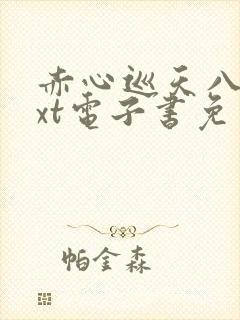 赤心巡天八
xt電子書免
帕金森